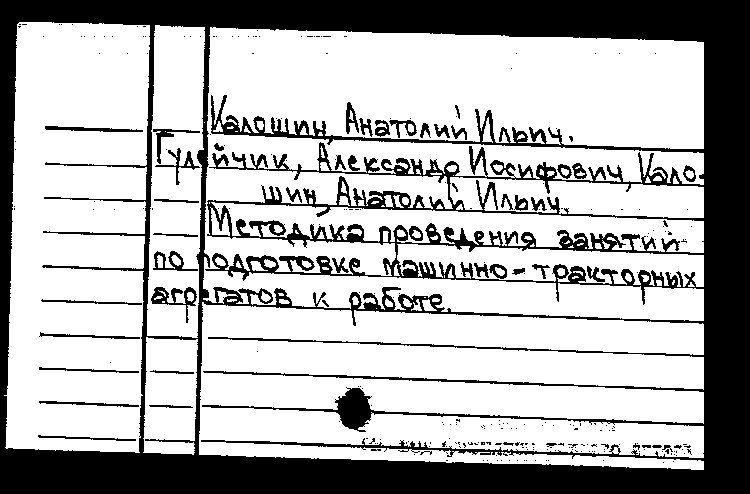 Калошин, Анатолий Ильич.
Гулейчик, Александр Иосифович, Кало-
шин, Анатолий Ильич.
Методика проведения занятий
по подготовке машинно-тракторных
агрегатов к работе.